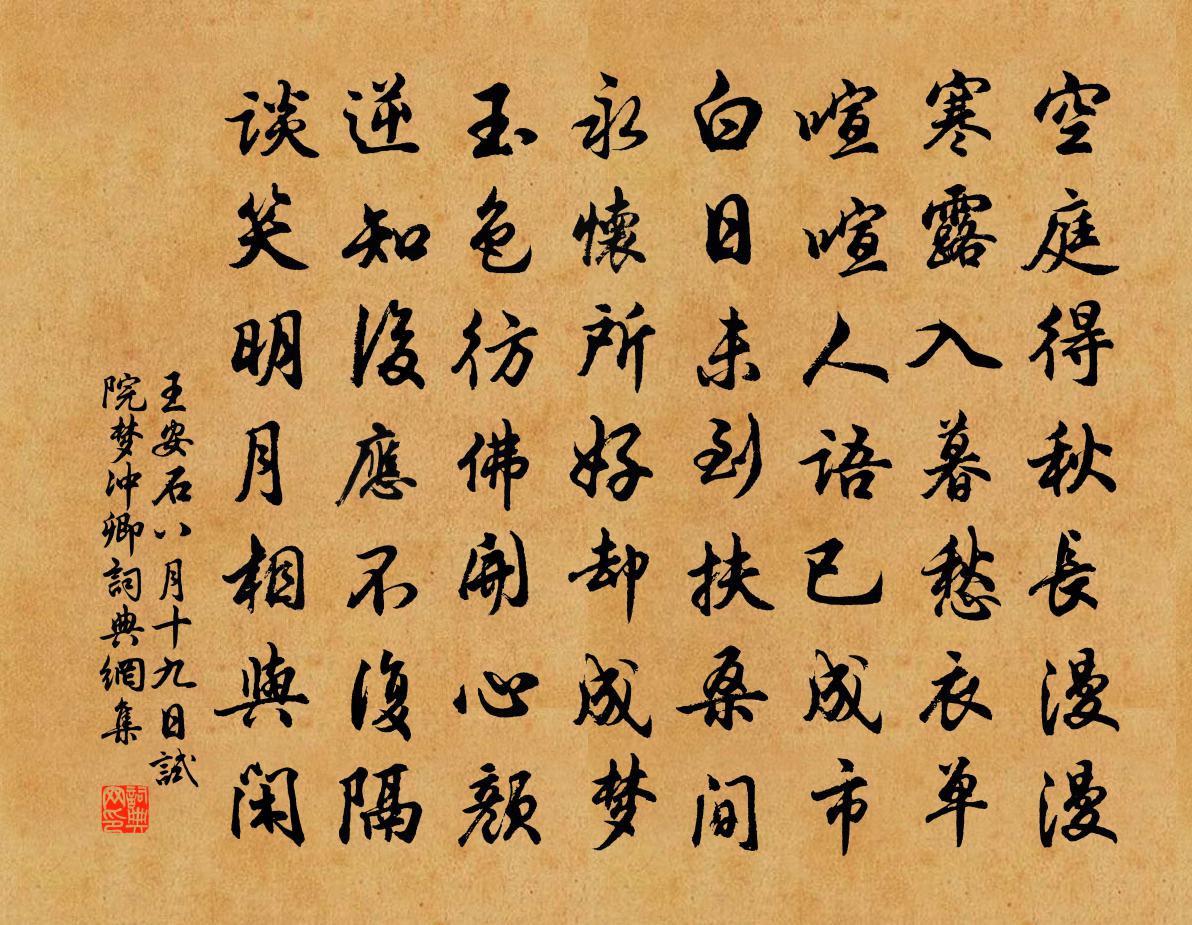 空庭得秋長漫漫
寒露入暮愁衣单
喧喧人語已成市
白日未到扶桑间
永懷所好却成梦
玉色彷佛開心顔
逆知後應不復隔
谈笑明月相與闲
王安石八月十九日試
院梦冲卿詞典網集
詞典
网印